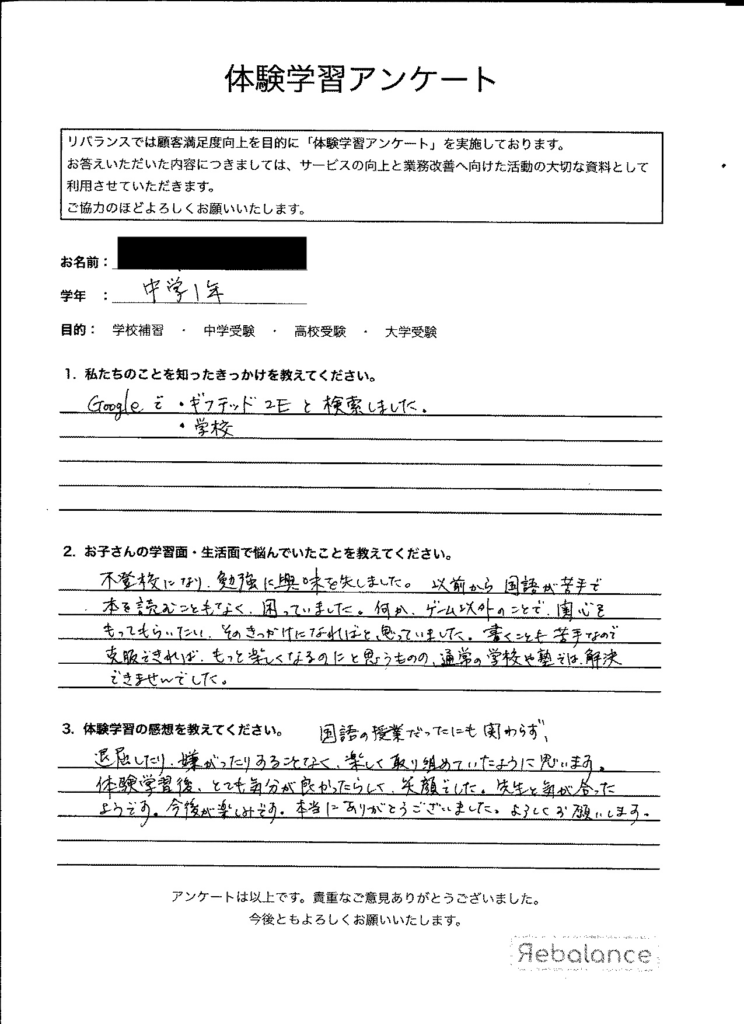 体験学習アンケート
リバランスでは顧客満足度向上を目的に「体験学習アンケート」を実施しております。
お答えいただいた内容につきましては、サービスの向上と業務改善へ向けた活動の大切な資料として
利用させていただきます。
ご協力のほどよろしくお願いいたします。
お名前：
学年　：　中学1年
目的：　学校補習　・　中学受験　・　高校受験　・　大学受験
1. 私たちのことを知ったきっかけを教えてください。
Googleで・ギフテッド 2E と検索しました。
・学校
2. お子さんの学習面・生活面で悩んでいたことを教えてください。
不登校になり、勉強に興味を失しました。以前から国語が苦手で
本を読むこともなく、困っていました。何か、ゲーム以外のことで、関心を
もってもらいたい、そのきっかけになればと思っていました。書くことも苦手なので
克服できれば、もっと楽しくなるのにと思うものの、通常の学校や塾では、解決
できませんでした。
3. 体験学習の感想を教えてください。　国語の授業だったにも関わらず、
退屈したり、嫌がったりすることなく、楽しく取り組めていたように思います。
体験学習後、とても気分が良かったらしく、笑顔でした。先生と気が合った
ようです。今後が楽しみです。本当にありがとうございました。よろしくお願いします。
アンケートは以上です。貴重なご意見ありがとうございました。
今後ともよろしくお願いいたします。
Rebalance